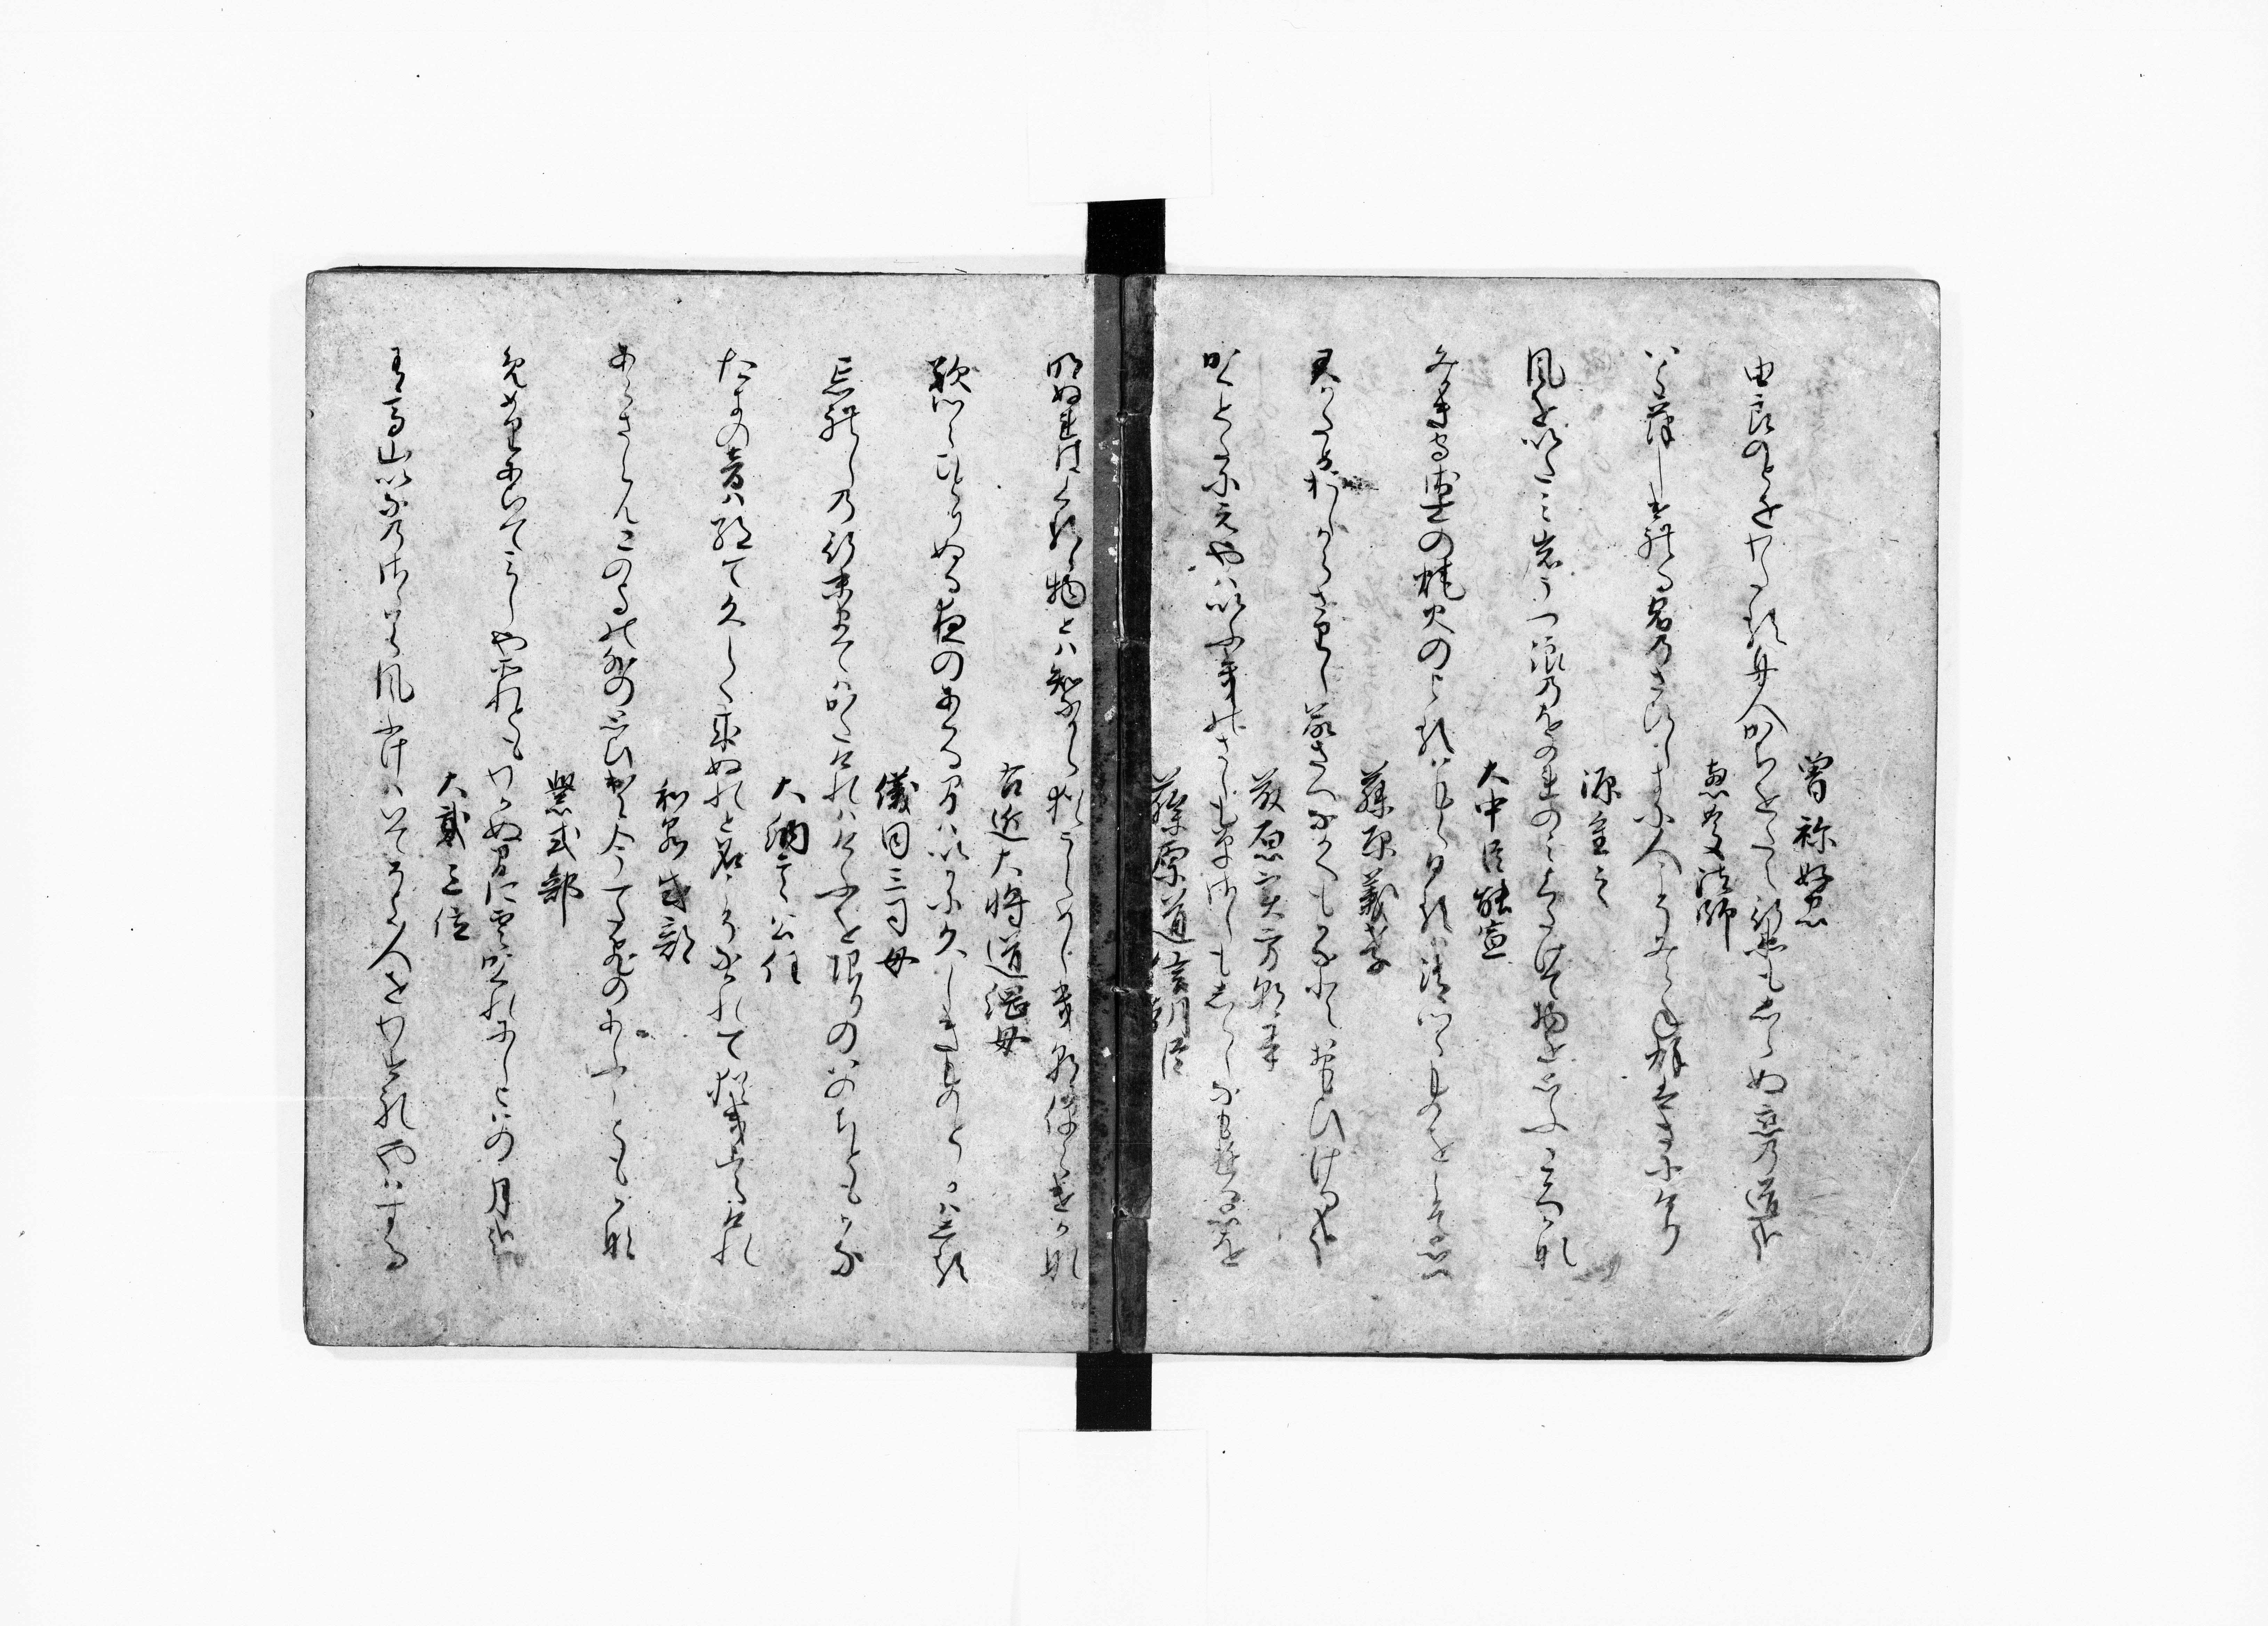 曽祢好忠
由良のとをわたる舟人かちをたえ行ゑもしらぬ恋乃道哉
恵慶法師
八重葎しけれる宿乃さひしきに人こそみえね秋はきにけり
源重之
風をいたミ岩うつ浪乃をのれのミくたけて物を思ふころ哉
大中臣能宣
みかきもり衛士の焼火のよるハもえ日るハ消つゝものをこそ思へ
藤原義孝
君かためおしからさりし命さへなかくもかなとおもひける哉
藤原実方朝臣
かくとたにえやハいふきのさしも草さしもしらしなもゆる思ひを
藤原道信朝臣
明ぬれはくるゝ物とハ知なから猶うらめしき朝ほらけ哉
右近大将道綱母
歎つゝひとりぬる夜のあくる間ハいかに久しきものとかハしる
儀同三司母
忘れしの行末まてハかたけれハけふを限りのいのちともかな
大納言公任
たきの音ハ絶て久しく成ぬれと名こそなかれて猶聞えけれ
和泉式部
あらさらんこのよの外の思ひ出に今一たひのあふこともかな
紫式部
めくりあひてみしやそれともわかぬ間に雲かくれにし夜はの月影
大貳三位
有馬山いなの篠原風ふけハいてそよ人をわすれやハする